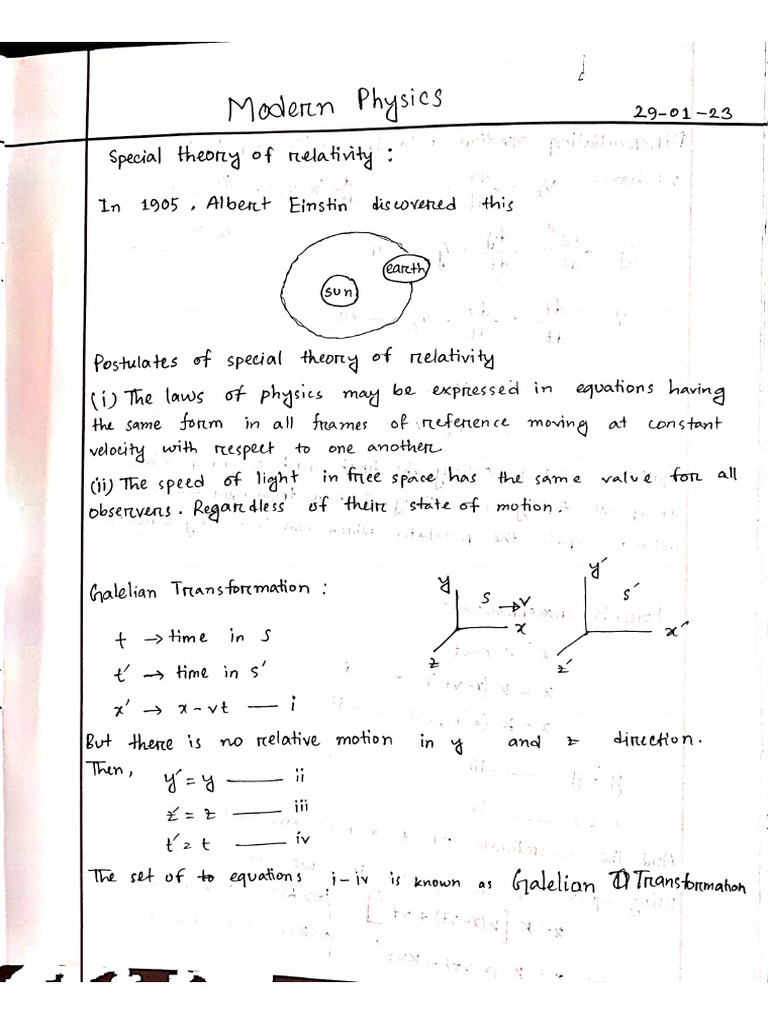 Modern Physics
29-01-23
Special theory of relativity :
In 1905, Albert Einstin discovered this
earth
sun
Postulates of special theory of relativity
(i) The laws of physics may be expressed in equations having
the same form in all frames of reference moving at constant
velocity with respect to one another.
(ii) The speed of light in free space has the same value for all
observers. Regardless of their state of motion.
Galelian Transformation :
y s →v x z
y′ s′ x′ z′
t → time in s
t′ → time in s′
x′ → x - vt — i
But there is no relative motion in y and z direction.
Then,
y′ = y — ii
z′ = z — iii
t′ = t — iv
The set of to equations i-iv is known as Galelian Transformation